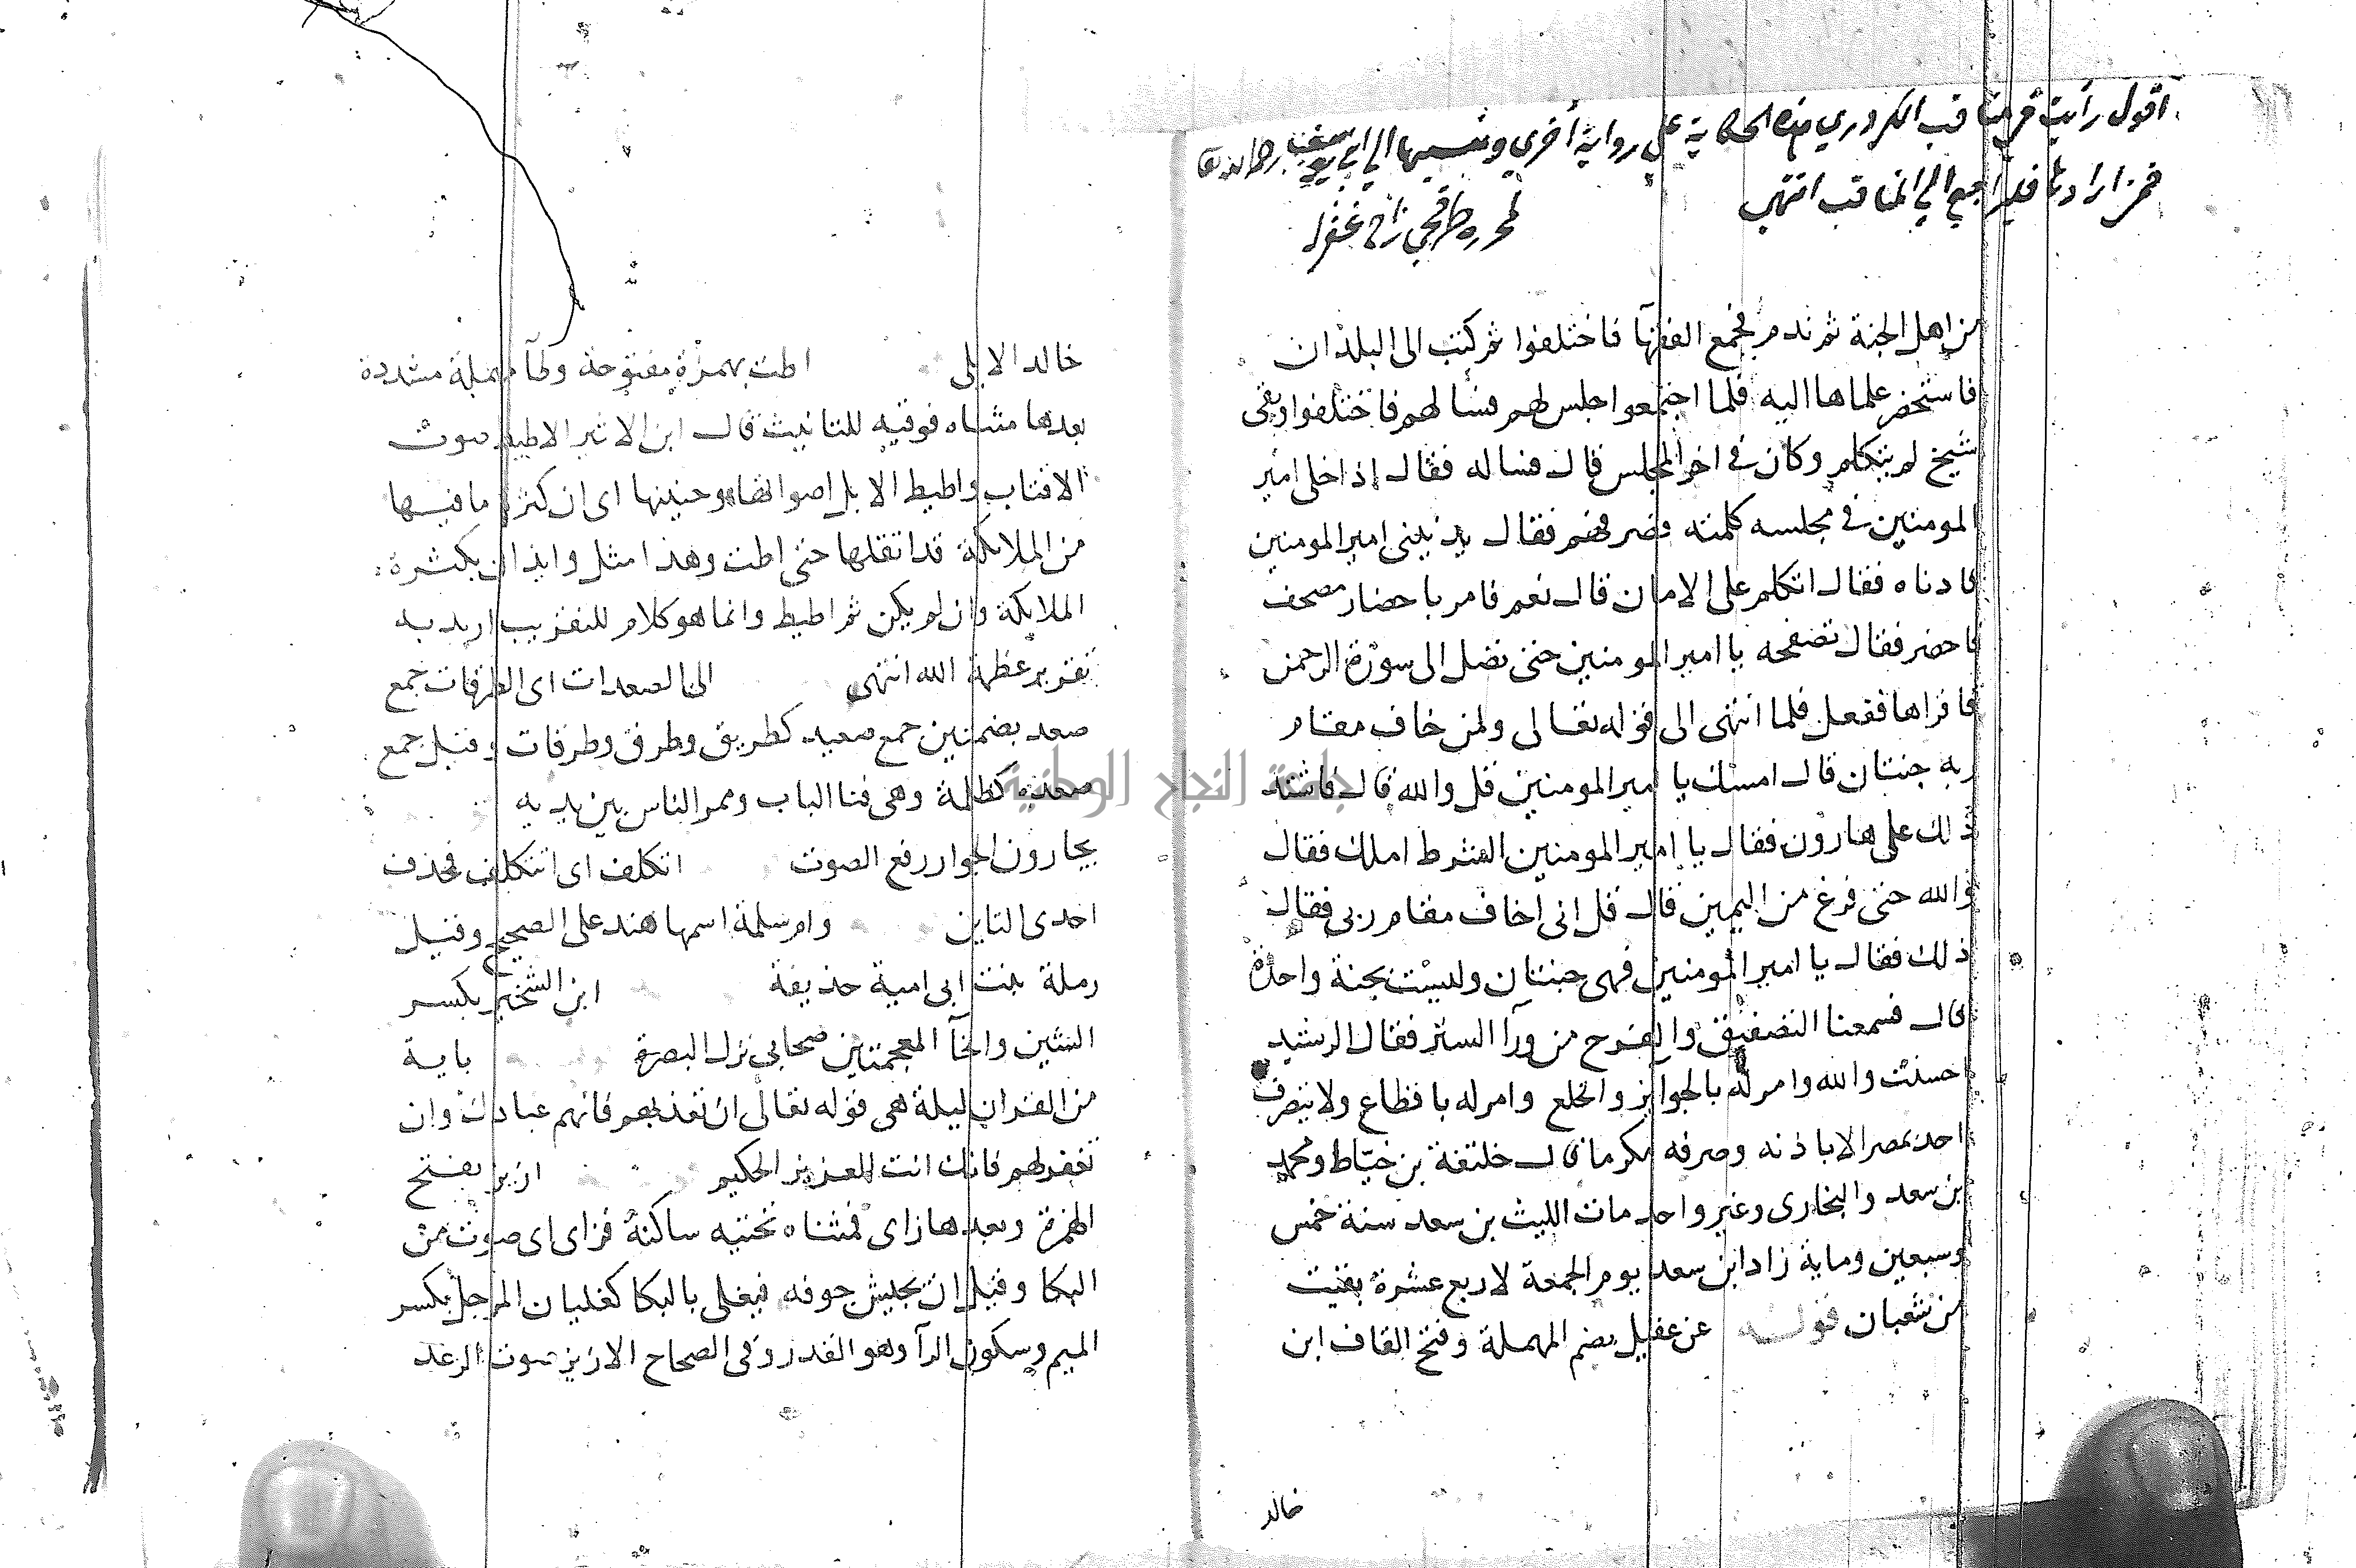 اقول رأيت في مناقب الكردري هذه الحكاية على رواية أخرى ونسبها الى ابي يوسف رحمه الله
فمن ارادها فليراجع الى المناقب انتهى
لمحرره غفر له
من اهل الجنة ثم ندم فجمع الفقهآ فاختلفوا ثم كتب الى البلدان
فاستحضر علماها اليه فلما اجتمعوا جلس لهم فسالهم فاختلفوا وبقى
شيخ لم يتكلم وكان في اخر المجلس قال فساله فقال اذا خلى امير
المومنين في مجلسه كلمته فصرفهم فقال يدنينى امير المومنين
فادناه فقال اتكلم على الامان قال نعم فامر باحضار مصحف
فاحضر فقال تصفحه يا امير المومنين حتى تصل الى سورة الرحمن
فاقراها ففعل فلما انتهى الى قوله تعالى ولمن خاف مقام
ربه جنتان قال امسك يا امير المومنين قل والله قال فاشتد
ذلك على هارون فقال يا امير المومنين الشرط املك فقال
والله حتى فرغ من اليمين قال قل انى اخاف مقام ربى فقال
ذلك فقال يا امير المومنين فهى جنتان وليست بجنة واحدة
قال فسمعنا التصفيق والفرح من ورآ الستر فقال الرشيد
احسنت والله وامر له بالجوايز والخلع وامر له باقطاع ولا يتصرف
احد بمصر الا باذنه وصرفه مكرما قال خليفة بن خياط ومحمد
بن سعد والبخارى وغير واحد مات الليث بن سعد سنة خمس
وسبعين وماية زاد ابن سعد يوم الجمعة لاربع عشرة بقيت
من شعبان قوله عن عقيل بضم المهملة وفتح القاف ابن
خالد
خالد الابلى اطت بهمزة مفتوحة وطآ مهملة مشددة
بعدها مثناه فوقيه للتانيث قال ابن الاثير الاطيط صوت
الاقتاب واطيط الابل اصواتها وحنينها اى ان كثرة ما فيها
من الملايكة قد اثقلها حتى اطت وهذا مثل وايذان بكثرة
الملايكة وان لم يكن ثم اطيط وانما هو كلام للتقريب اريد به
تقرير عظمة الله انتهى الى الصعدات اى الطرقات جمع
صعد بضمتين جمع صعيد كطريق وطرق وطرقات وقيل جمع
صعدة كظلمة وهى فنا الباب وممر الناس بين يديه
يجارون الجوار رفع الصوت اتكلف اى اتتكلف فحذف
احدى التاين وام سلمة اسمها هند على الصحيح وقيل
رملة بنت ابى امية حذيفة ابن الشخير بكسر
الشين والخآ المعجمتين صحابى نزل البصرة باية
من القران ليلة هى قوله تعالى ان تعذبهم فانهم عبادك وان
تغفر لهم فانك انت العزيز الحكيم ازيز بفتح
الهمزة وبعدها زاى فمثناه تحتيه ساكنة فزاى اى صوت من
البكا وقيل ان يجيش جوفه فيغلى بالبكا كغليان المرجل بكسر
الميم وسكون الرآ وهو القدر وفى الصحاح الازيز صوت الرعد
جامعة النجاح الوطنية